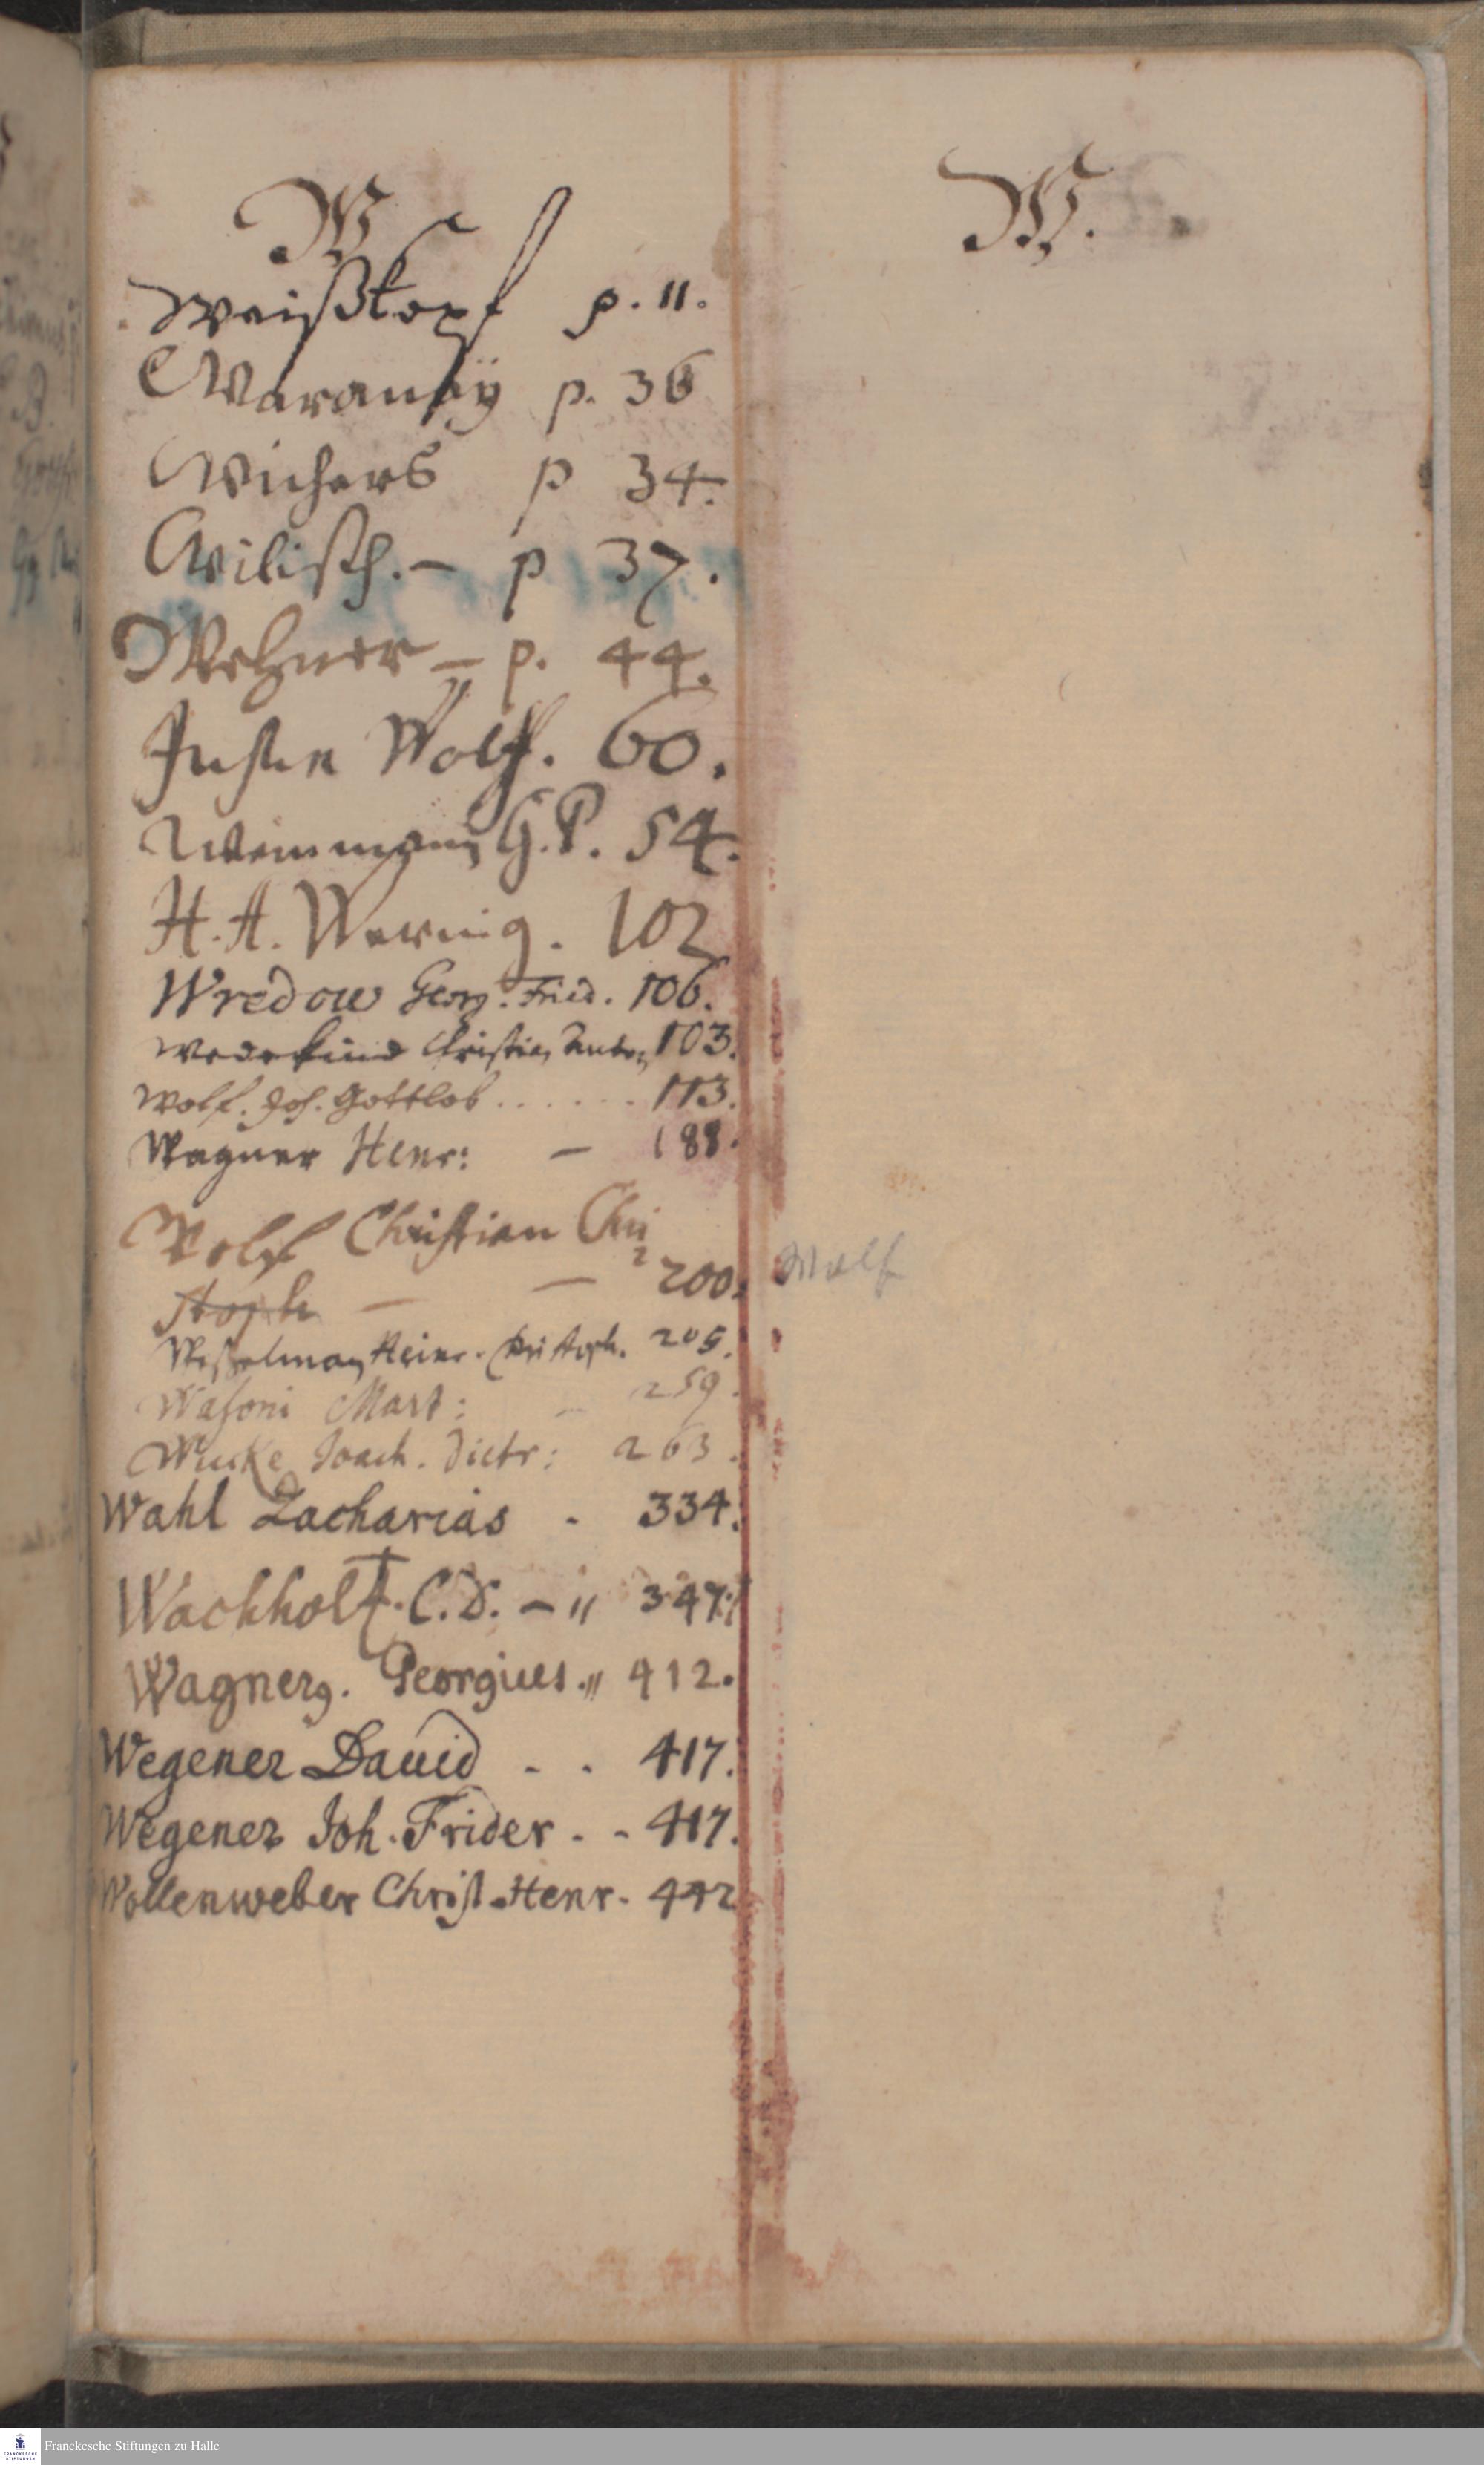 W
Weißkopf p. 11.
Waranÿ p. 36
Wichers p 34.
Wilisch. — p 37.
Wehner — p. 44.
Juster Wolff. 60.
Weinmann G. P. 54.
H. A. Wernig. 102
Wredow Georg. Frid. 106.
Wedekind Christian Anton 103.
Wolf. Joh. Gottlob . . . . . . 113.
Wagner Henr: — 188.
Wolf Christian Chri
stoph — — 200.
Weßelman Heinr. Christoph. 205.
Wasoni Mart: — 259.
Wucke Joach. Dietr: 263.
Wahl Zacharias - 334.
Wachholtz. C. D. — " 347.
Wagner. Georgius. " 412.
Wegener David - - 417.
Wegener Joh. Frider - - 417.
Wollenweber Christ. Henr. 442
W.
Wolf
Franckesche Stiftungen zu Halle